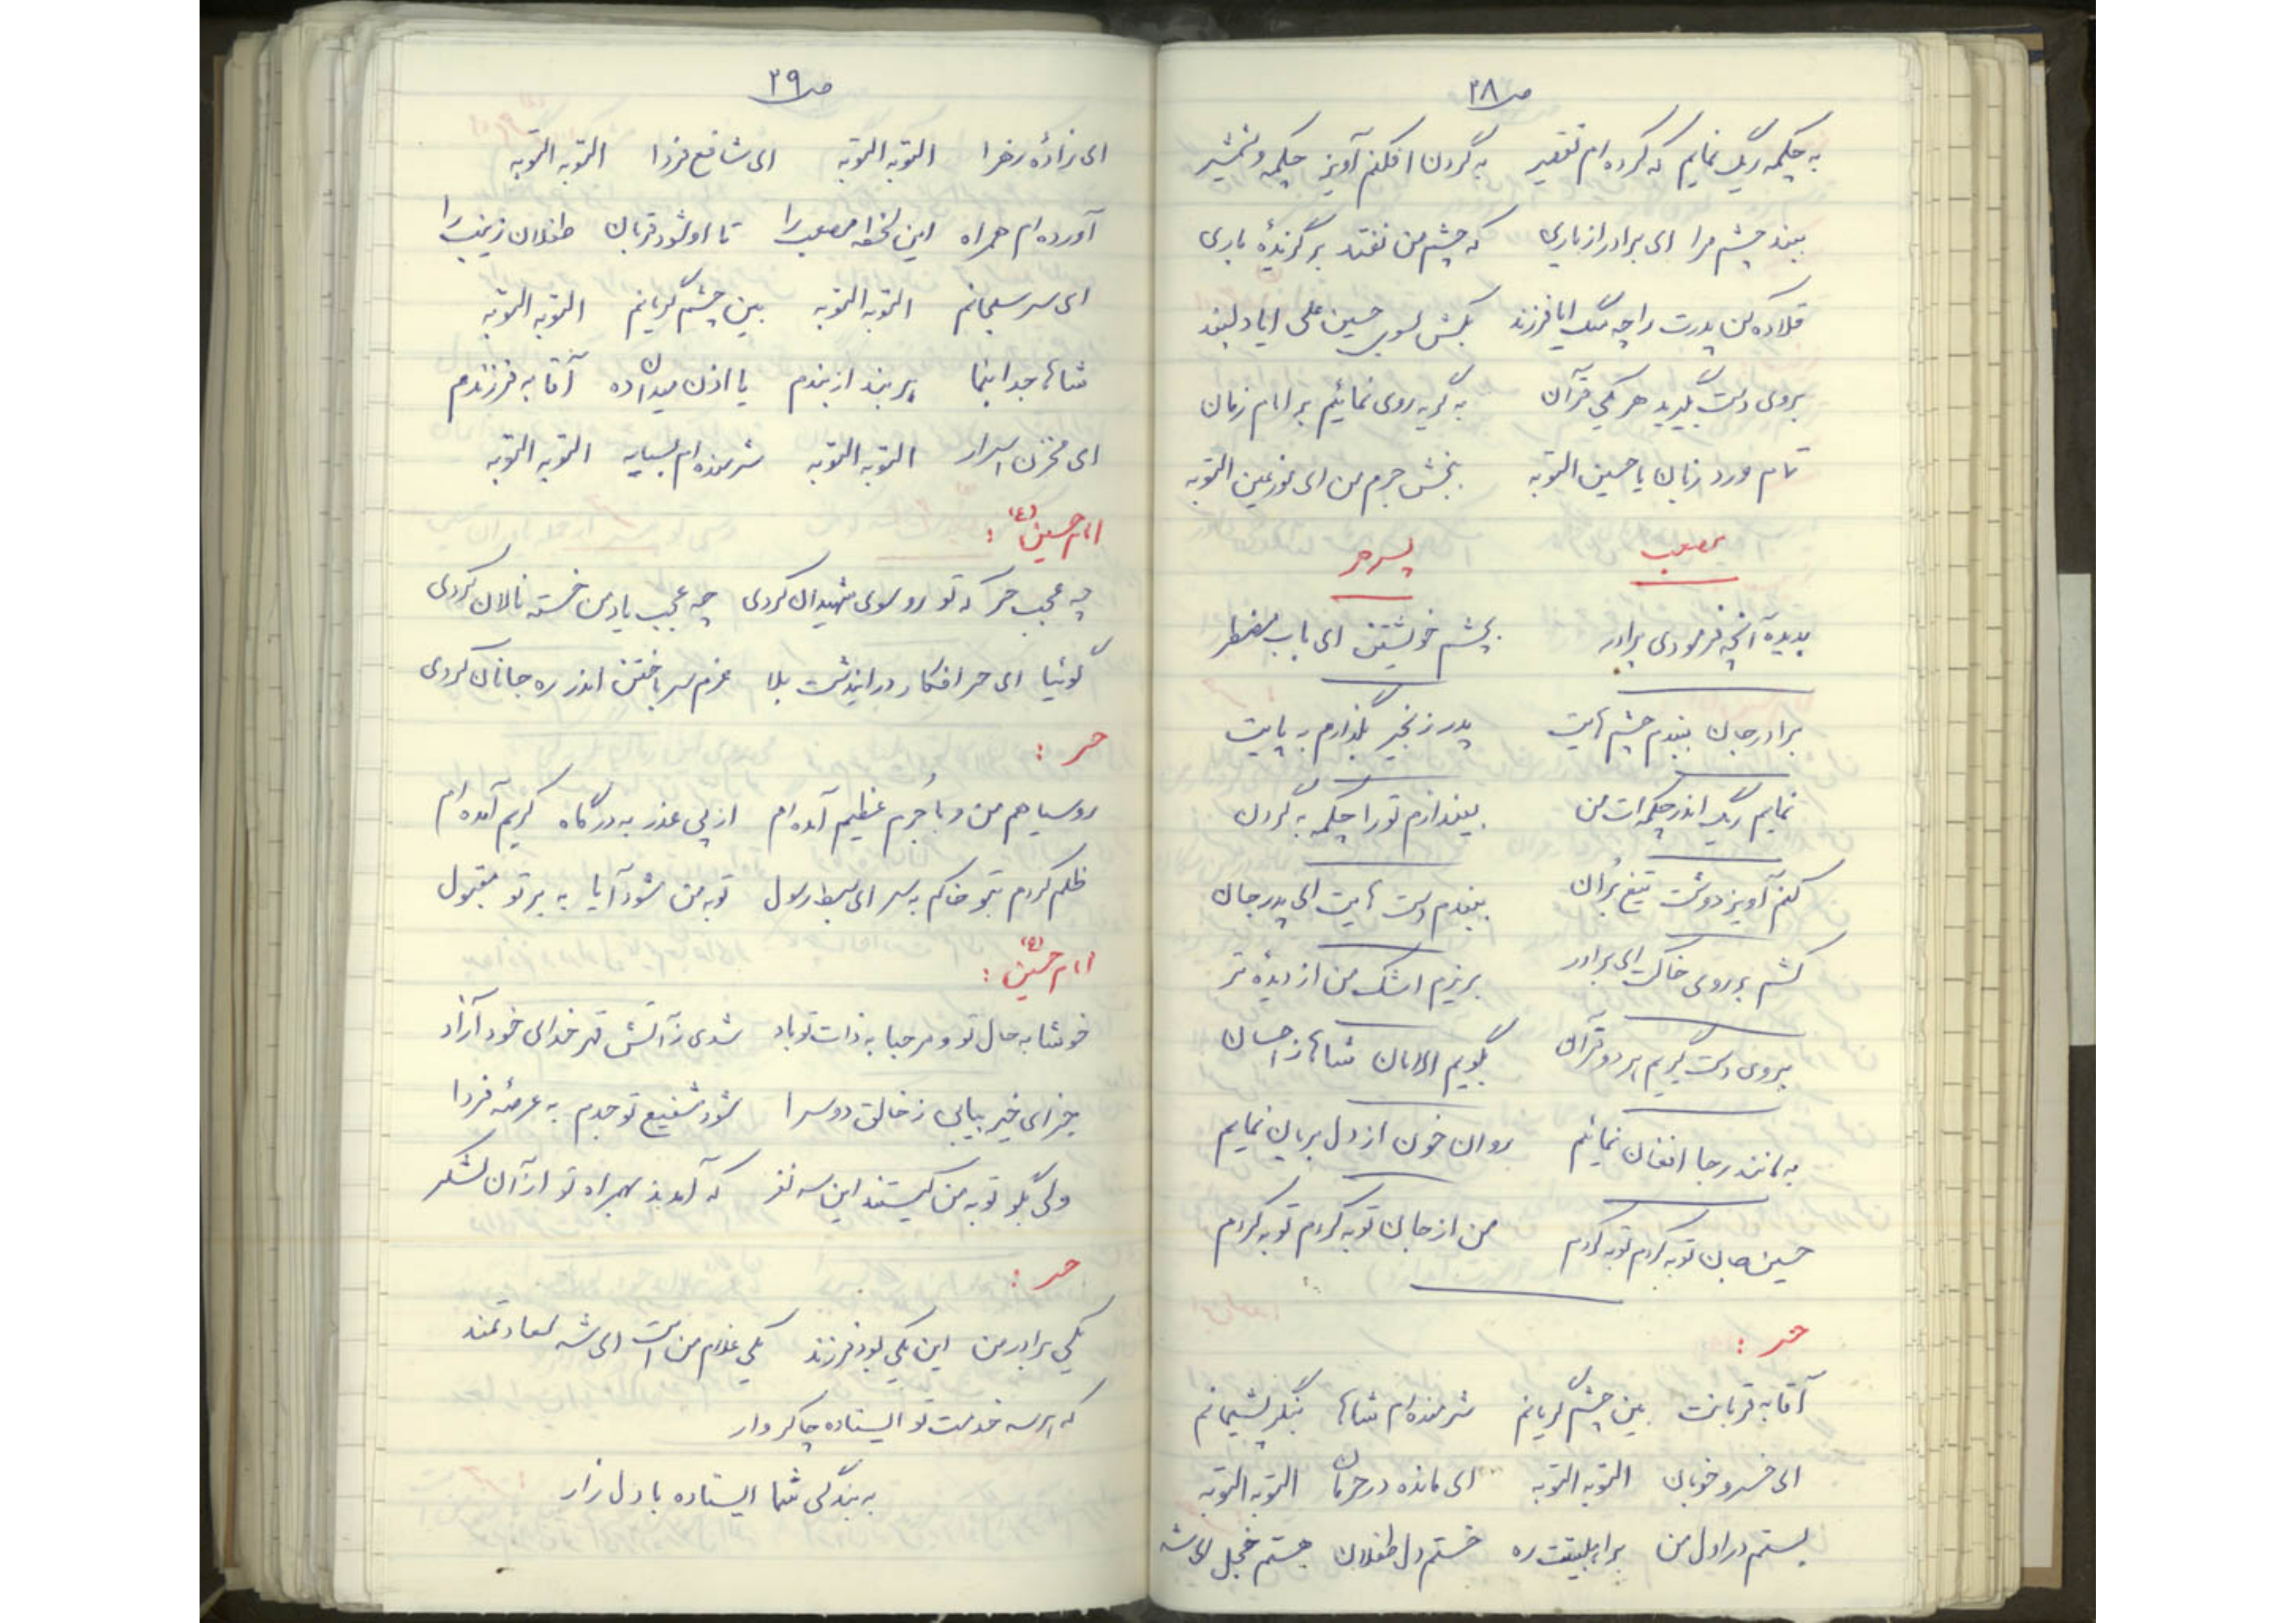 ص ۲۸
به چکمه ریگ نمایم که کرده ام تقصیر به گردن افکنم آویز چکمه و شمشیر
ببند چشم مرا ای برادر از یاری که چشم من نفتد بر گزیدهٔ باری
قلاده کن پدرت را چه سگ ایا فرزند بکش بسوی حسین علی ایا دلبند
بروی دست بگیرید هر یکی قرآن به گریه روی نمائیم بر امام زمان
تمام ورد زبان یا حسین التوبه ببخش جرم من ای نور عین التوبه
مصعب پسر حر
بدیده آنچه فرمودی برادر بچشم خویشتن ای باب مضطر
برادر جان ببندم چشم هایت پدر زنجیر بگذارم به پایت
نمایم ریگ اندر چکمه ات من بیندازم تو را چکمه به گردن
کنم آویز دوشت تیغ بُران ببندم دست هایت ای پدر جان
کشم بر روی خاکت ای برادر بریزم اشک من از دیدهٔ تر
بروی دست گیریم هر دو قرآن بگویم الامان شاها ز احسان
به مانند رجا افغان نمائیم روان خون از دل بریان نمایم
حسین جان توبه کردم توبه کردم من از جان توبه کردم توبه کردم
حر :
آقا به قربانت بین چشم گریانم شرمنده ام شاها بنگر پشیمانم
ای خسرو خوبان التوبه التوبه ای مانده در حرمان التوبه التوبه
بستم در اول من بر اهلبیتت ره خستم دل طفلان هستم خجل ای شه
ص ۲۹
ای زادهٔ زهرا التوبه التوبه ای شافع فردا التوبه التوبه
آورده ام همراه این لحظه مصعب را تا او شود قربان طفلان زینب را
ای سر سبحانم التوبه التوبه بین چشم گریانم التوبه التوبه
شاها جدا بنما بر بند از بندم یا اذن میدان ده آقا به فرزندم
ای مخزن اسرار التوبه التوبه شرمنده ام بسیار التوبه التوبه
امام حسین (ع) :
چه عجب حر که تو رو سوی شهیدان کردی چه عجب یاد من خسته نالان کردی
گوئیا ای حر افکار در ایندشت بلا عزم سر باختن اندر ره جانان کردی
حر :
روسیاهم من و با جُرم عظیم آمده ام از پی عذر به درگاه کریم آمده ام
ظلم کردم بتو خاکم به سر ای سبط رسول توبه من شود آیا به بر تو مقبول
امام حسین (ع) :
خوشا به حال تو و مرحبا به ذات تو باد شدی ز آتش قهر خدای خود آزاد
جزای خیر بیابی ز خالق دو سرا شود شفیع تو جدم به عرصهٔ فردا
ولی بگو تو به من کیستند این سه نفر که آمدند بهمراه تو از آن لشکر
حر :
یکی برادر من این یکی بود فرزند یکی غلام من است ای شه سعادتمند
که هر سه خدمت تو ایستاده چاکر وار
به بندگی شما ایستاده با دل زار